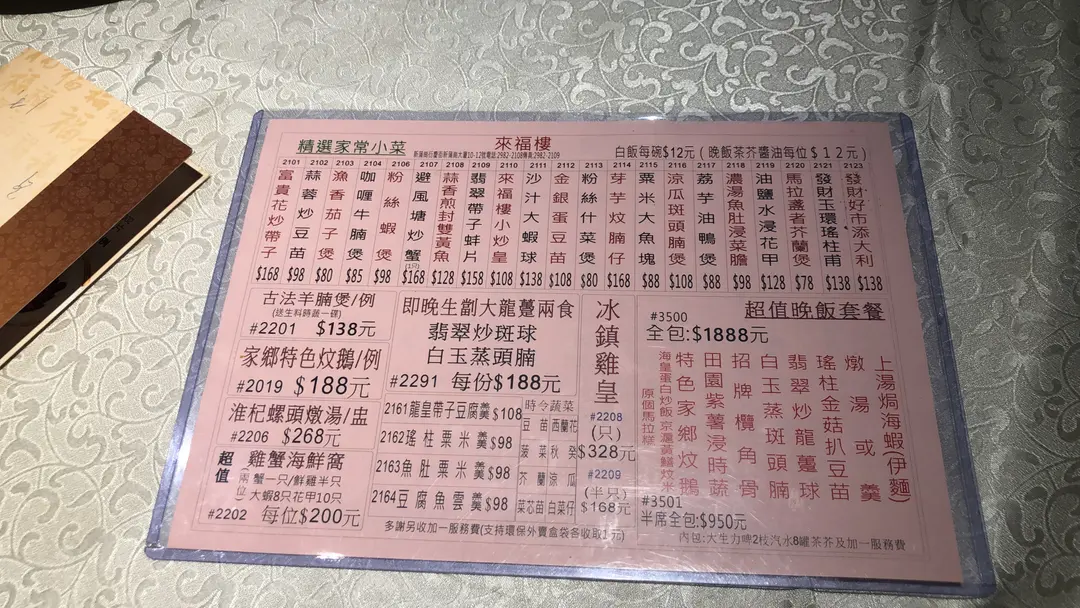 精選家常小菜
來福樓
白飯每碗$12元(晚飯茶芥醬油每位$12元)
2101 富貴花炒帶子 $168
2102 蒜蓉炒豆苗 $98
2103 漁香茄子煲 $80
2104 咖喱牛腩煲 $85
2105 粉絲蝦煲 $98
2106 避風塘炒蟹 $168
2107 蒜香煎封雙黃魚 $128
2108 翡翠帶子蚌片 $158
2109 來福樓小炒皇 $108
2110 沙汁大蝦球 $138
2111 金銀蛋豆苗 $108
2112 粉絲什菜煲 $80
2113 芋芋炆腩仔 $168
2114 粟米大魚塊 $88
2115 涼瓜斑頭腩煲 $108
2116 荔芋油鴨煲 $88
2117 濃湯魚肚浸菜膽 $98
2119 油鹽水浸花甲 $128
2120 馬拉盞者芥蘭煲 $78
2121 發財玉環瑤柱甫 $138
2123 發財好市添大利 $138
古法羊腩煲/例
(送生料時蔬一碟)
#2201 $138元
家鄉特色炆鵝/例
#2019 $188元
淮杞螺頭燉湯/盅
#2206 $268元
超值 雞蟹海鮮窩
(兩位) 蟹一只/鮮雞半只
大蝦8只花甲10只
#2202 每位$200元
即晚生劏大龍躉兩食
翡翠炒斑球
白玉蒸頭腩
#2291 每份$188元
2161龍皇帶子豆腐羹$108
2162瑤柱粟米羹$98
2163魚肚粟米羹$98
2164豆腐魚雲羹$98
時令蔬菜
豆苗 西蘭花
菠菜 秋葵
芥蘭 涼瓜
菜芯苗 白菜仔
冰鎮雞皇
#2208
(只)
$328元
#2209
(半只)
$168元
#3500 超值晚飯套餐
全包:$1888元
上湯焗海蝦(伊麵)
燉湯或羹
瑤柱金菇扒豆苗
翡翠炒龍躉球
白玉蒸斑頭腩
招牌欖角骨
田園紫薯浸時蔬
特色家鄉炆鵝
海皇蛋白炒飯
原個馬拉糕
#3501
半席全包:$950元
內包:大生力啤2枝汽水8罐茶芥及加一服務費
多謝另收加一服務費(支持環保外賣盒袋各收取1元)